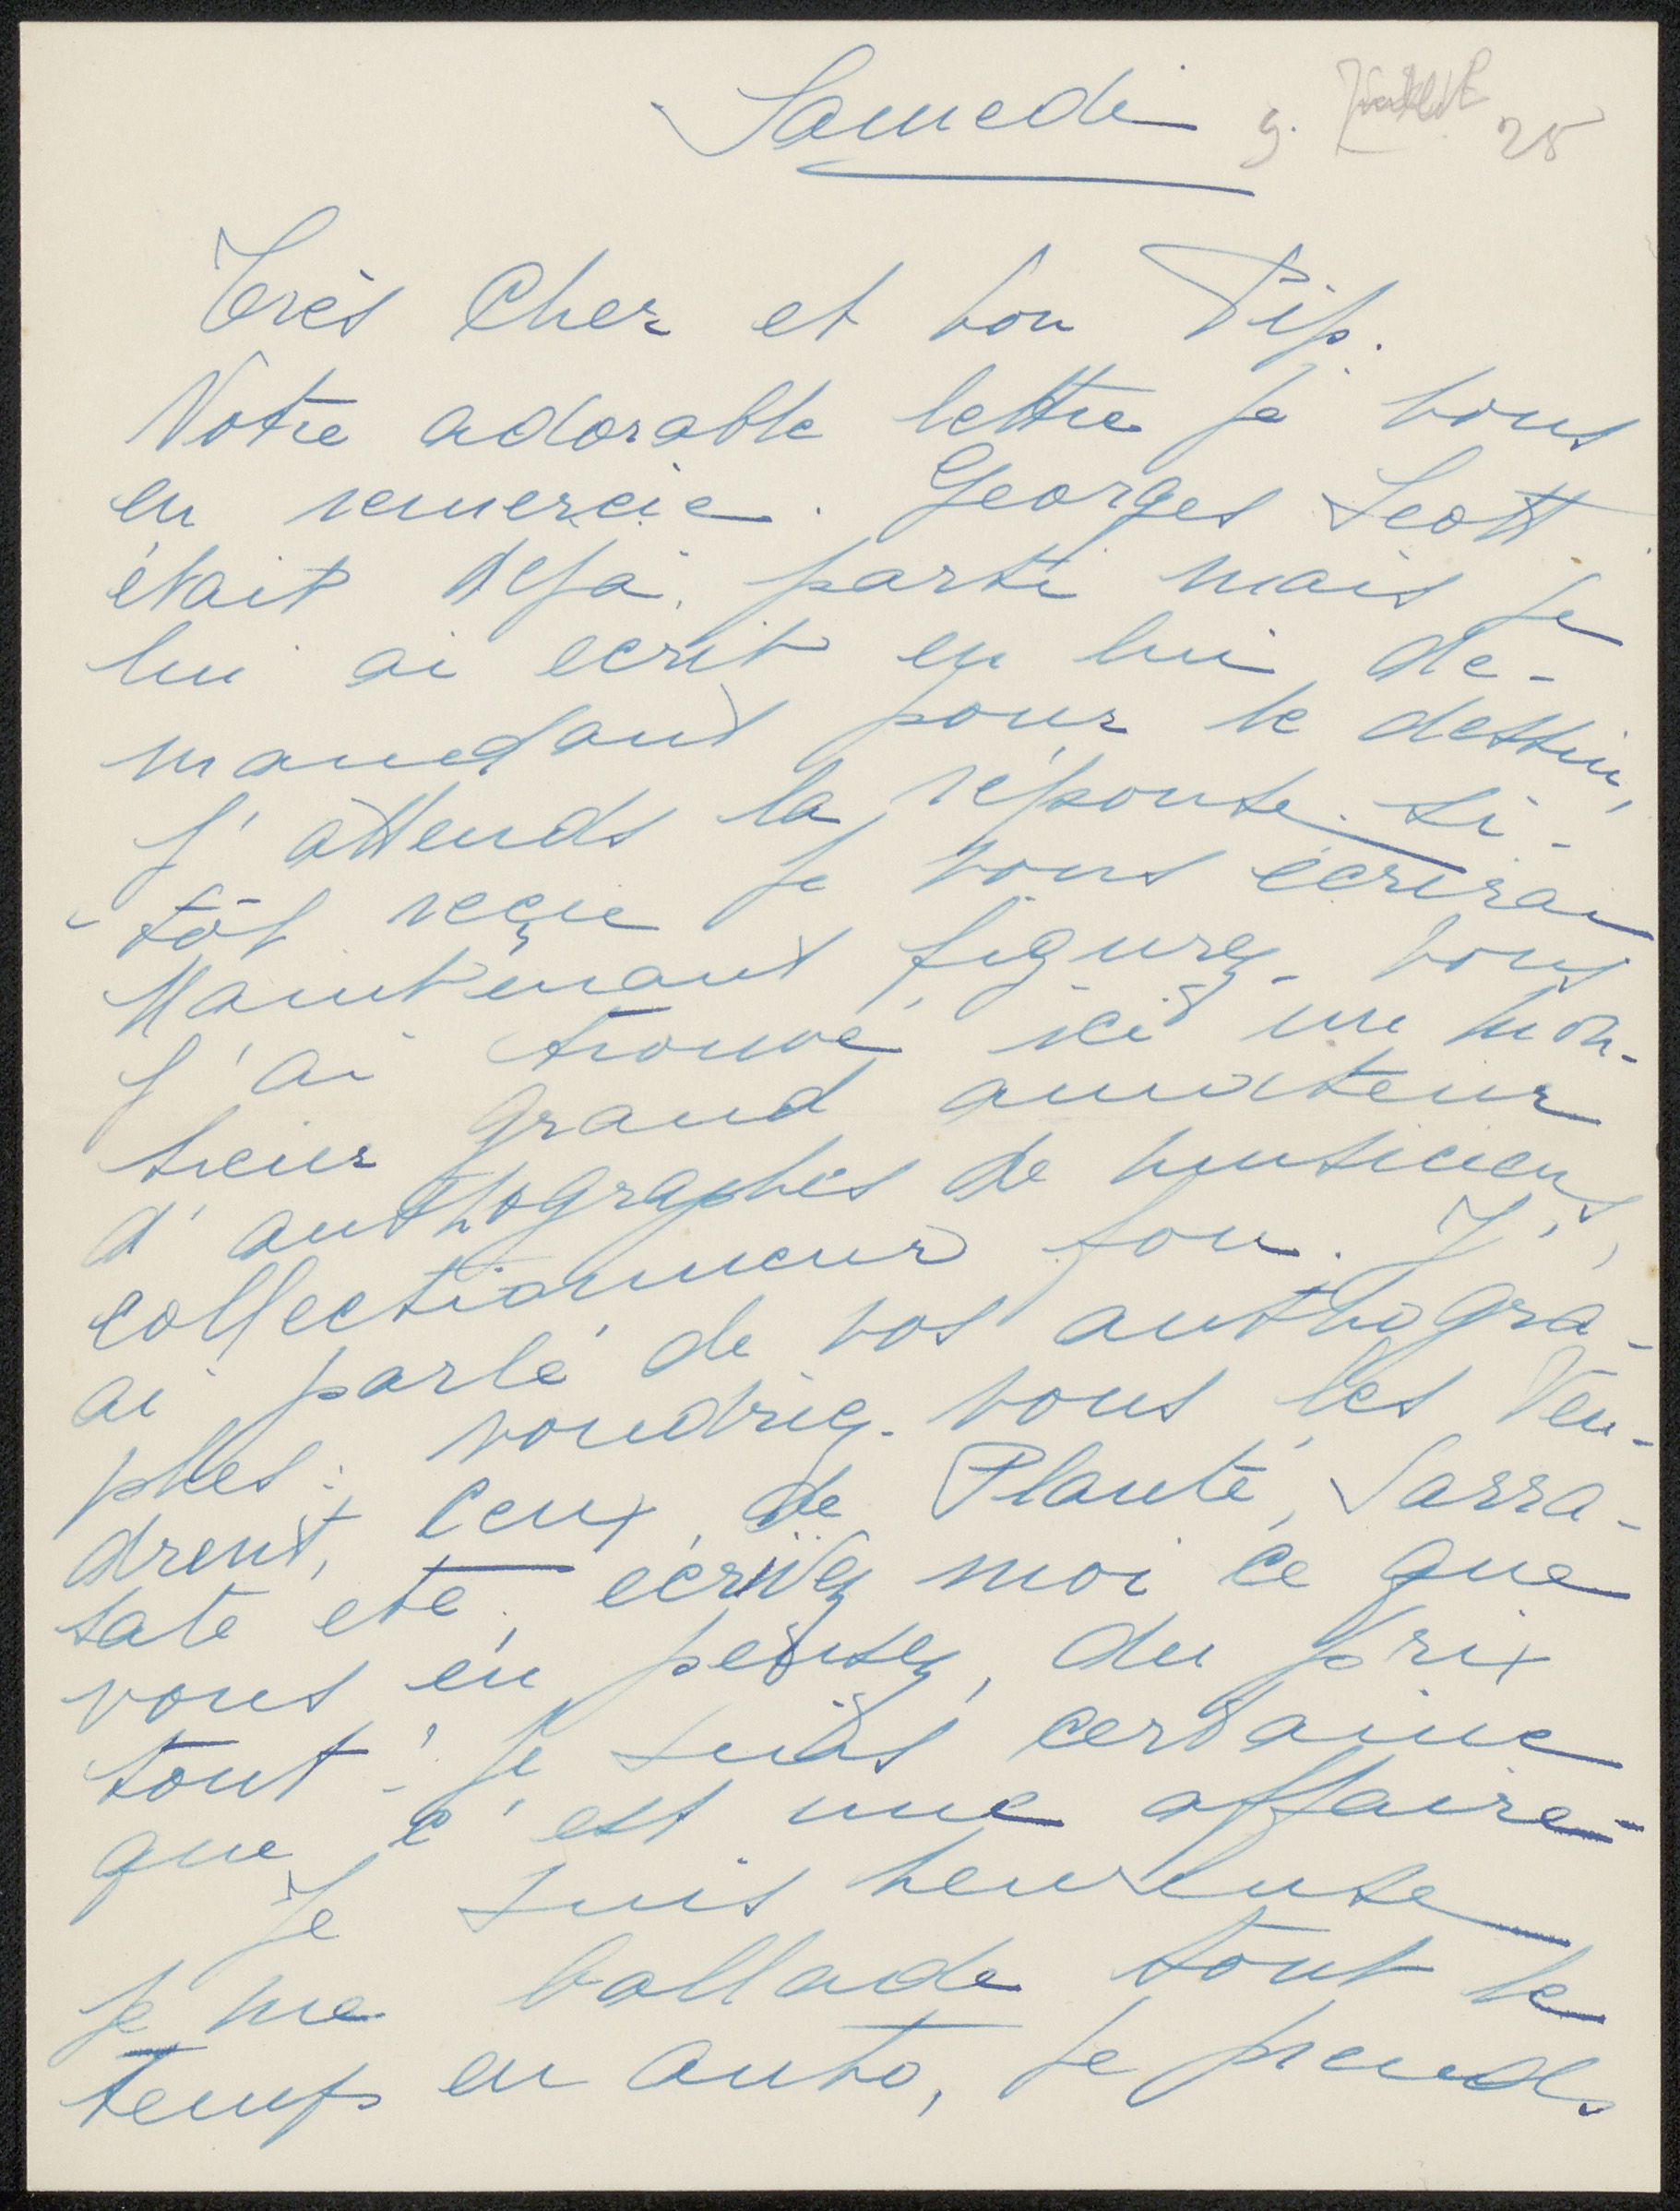 Samedi 9. 25
Très Cher et bon Pip.
Votre adorable lettre je vous
en remercie. Georges Scott
était déjà parti mais je
lui ai ecrit en lui de-
mandant pour le dessin,
j'attends la réponse. si-
-tôt reçue je vous écrirai
Maintenant figurez-vous
j'ai trouvé ici un mon-
sieur grand amateur
d'authographes de musiciens,
collectionneur fou. J'
ai parlé de vos authogra-
phes: voudriez-vous les ven-
drent, ceux de Planté, Sarra-
sate etc, écrivez moi ce que
vous en pensez, du prix
tout! Je suis certaine
que c'est une affaire-
Je suis heureuse
je me ballade tout le
temps en auto, je prends